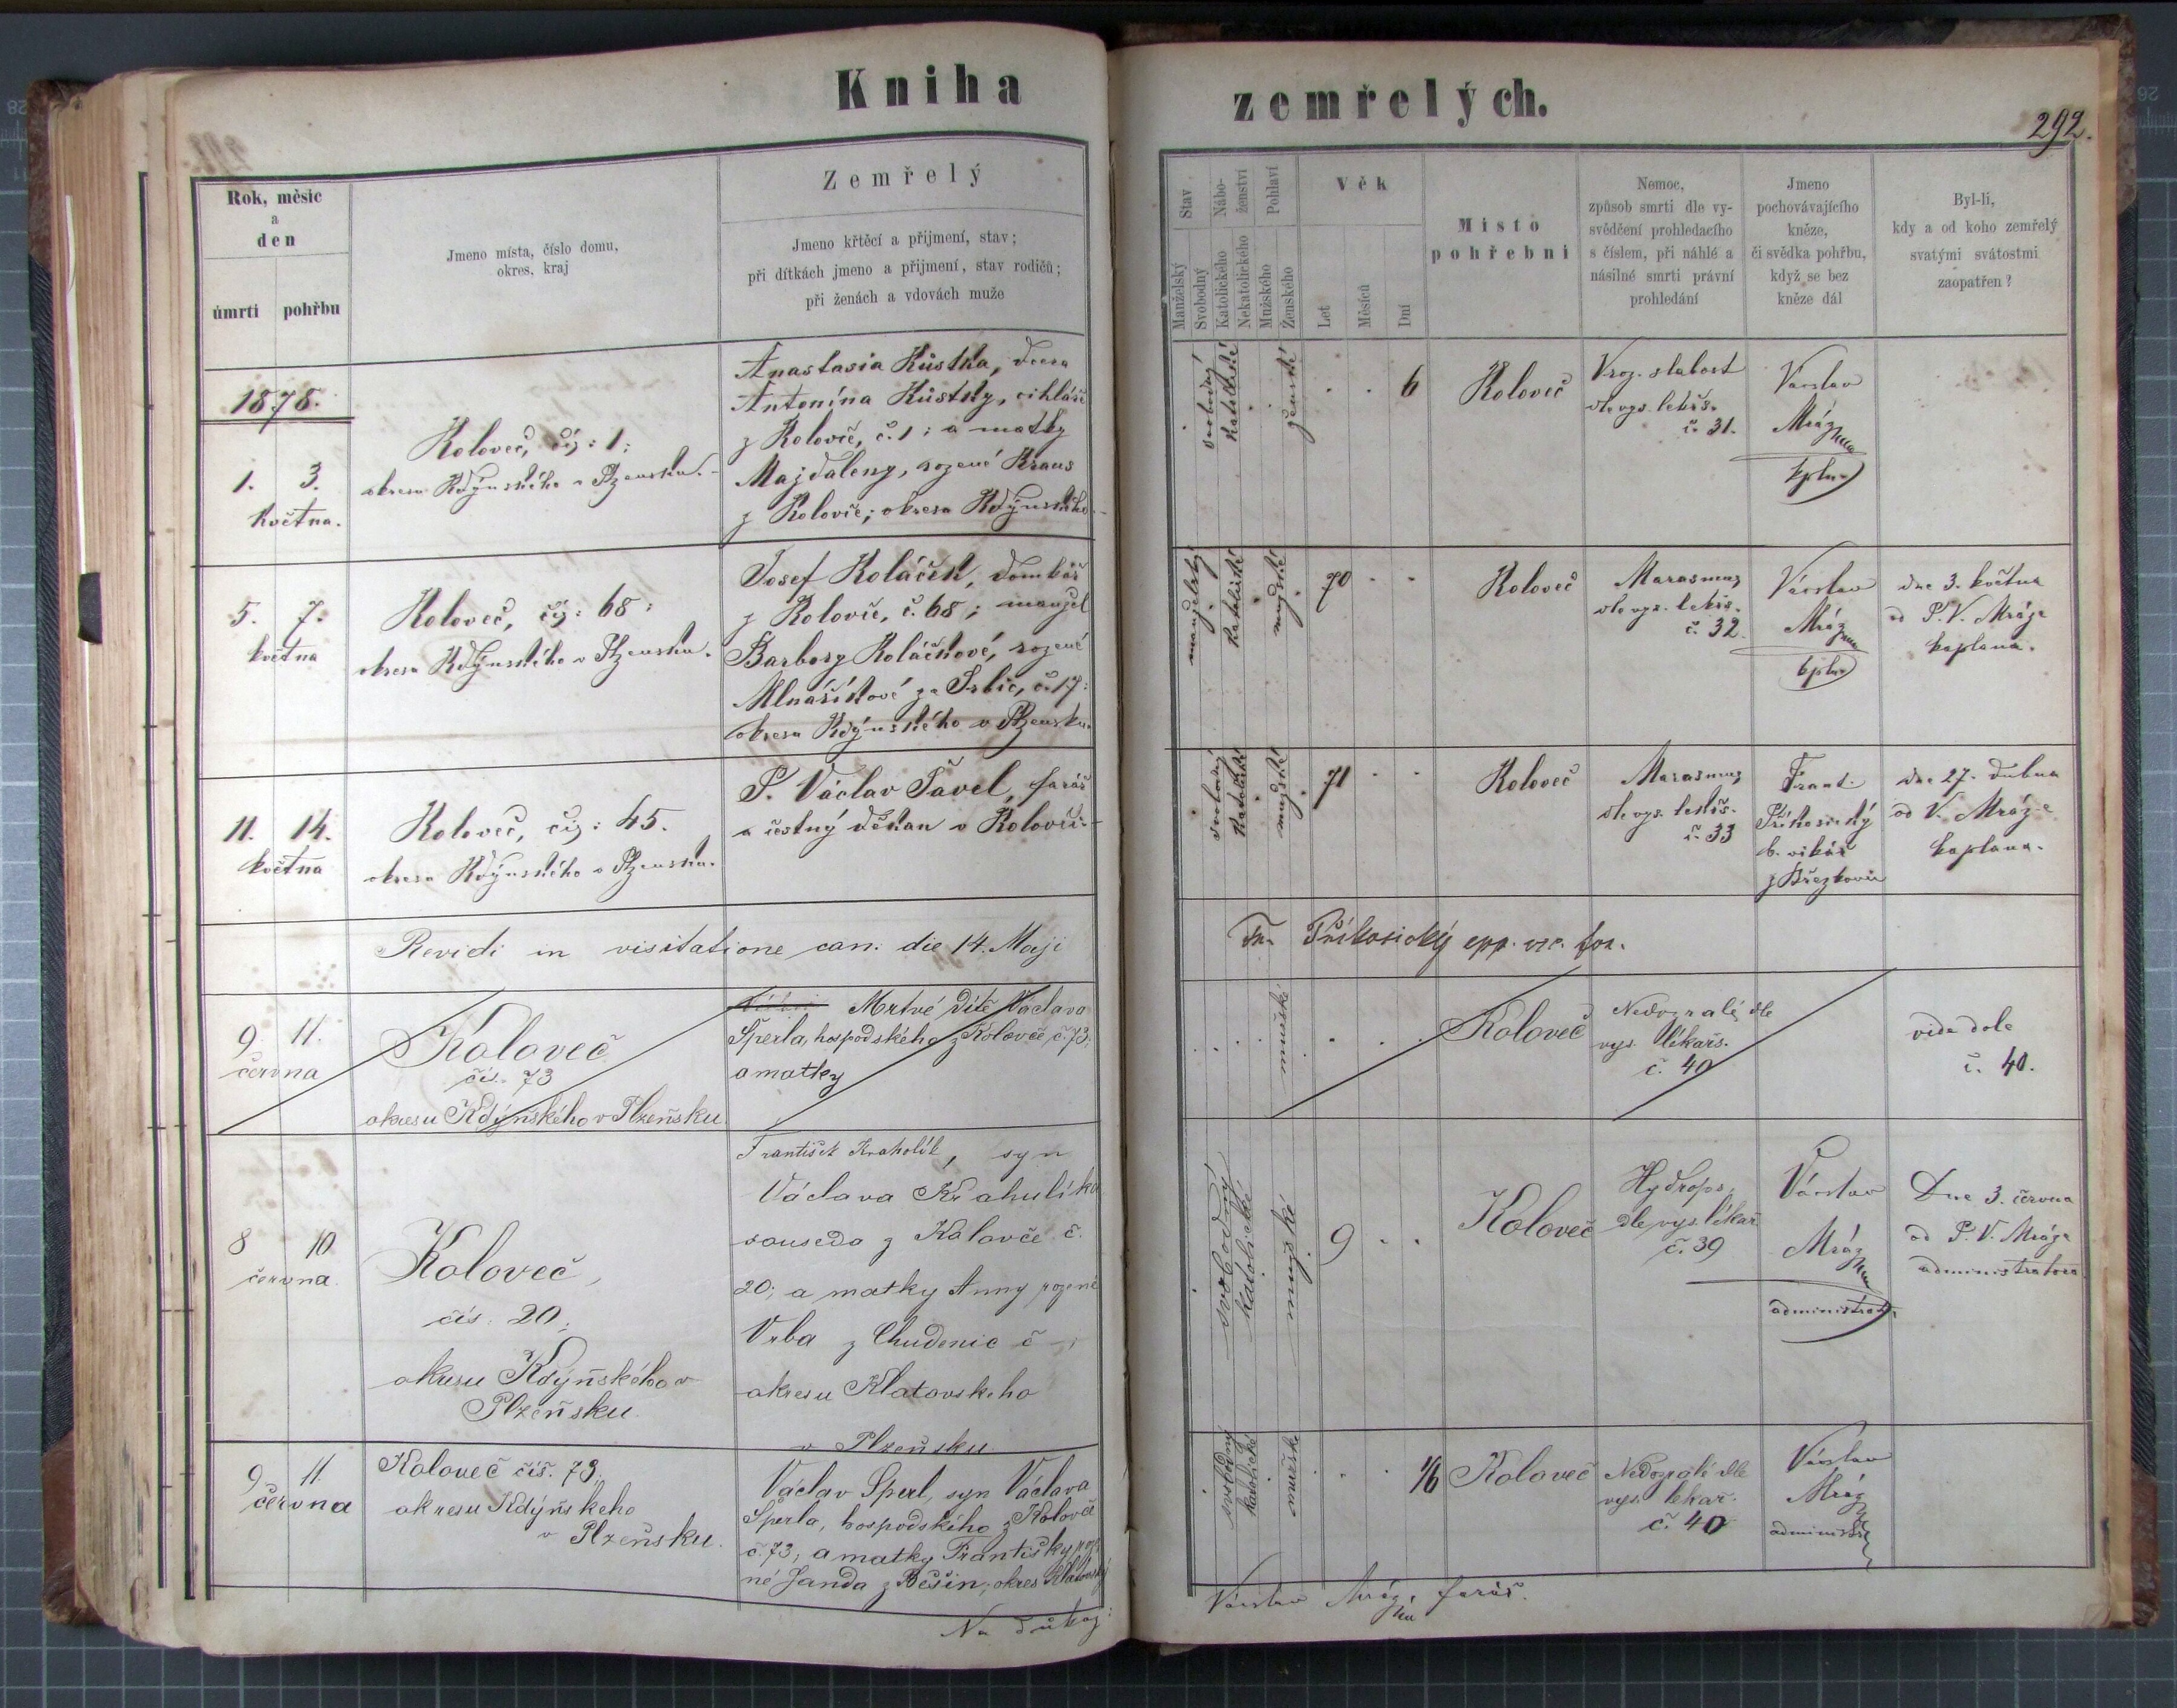 Kniha zemřelých.
292.
Rok, měsíc
a
den
úmrtí pohřbu
Jmeno místa, číslo domu,
okres, kraj
Zemřelý
Jmeno křtěcí a přijmení, stav;
při dítkách jmeno a přijmení, stav rodičů;
při ženách a vdovách muže
Stav
Manželský
Svobodný
Nábo-
ženství
Katolického
Nekatolického
Pohlaví
Mužského
Ženského
Věk
Let
Měsíců
Dní
Místo
pohřební
Nemoc,
způsob smrti dle vy-
svědčení prohledacího
s číslem, při náhlé a
násilné smrti právní
prohledání
Jmeno
pochovávajícího
kněze,
či svědka pohřbu,
když se bez
kněze dál
Byl-li,
kdy a od koho zemřelý
svatými svátostmi
zaopatřen?
1878.
1. 3.
Května.
Koloveč, čís: 1:
okresu Kdýnského v Plzensku.
Anastasia Kůstka, dcera
Antonína Kůstky, cihláře
z Kolovče, č. 1: a matky
Majdaleny, rozené Kraus
z Kolovče; okresu Kdýnského
svobodný
katolické
ženské
6
Koloveč
Vroz. slabost
dle vys. lékař.
č. 31.
Václav
Mráz
kplan
5. 7.
května
Koloveč, čís: 68:
okresu Kdýnského v Plzensku.
Josef Koláček, domkář
z Kolovče, č. 68; manžel
Barbory Koláčkové, rozené
Mlnaříkové ze Srbic, č. 17:
okresu Kdýnského v Plzensku.
manželský
katolické
mužské
70
Koloveč
Marasmus
dle vys. lekář.
č. 32.
Václav
Mráz
kplan
dne 3. května
od P. V. Mráze
kaplana.
11. 14.
května
Koloveč, čís: 45.
okresu Kdýnského v Plzensku.
P. Václav Pavel, farář
a čestný děkan v Kolovči.
svobodný
katolické
mužské
71
Koloveč
Marasmus
dle vys. lekář.
č. 33
Frant.
Příkosický
b. vikář
z Březkovic
dne 27. dubna
od V. Mráze
kaplana.
Revidi in visitatione can. die 14. Maji
Fr. Příkosický epp. vic. for.
9. 11.
června
Koloveč
čís. 73
okresu Kdýňského v Plzeňsku
Mrtvé dítě Václava
Šperla, hospodského z Kolovče, č. 73;
a matky
mužské
Koloveč
Nedozralé, dle
vys. lékařs.
č. 40
vide dole
č. 40.
8 10
června.
Koloveč,
čís. 20;
okresu Kdýňského v
Plzeňsku
František Kraholík, syn
Václava Krahulíka
souseda z Kolovče č.
20; a matky Anny rozené
Vrba z Chudenic č –;
okresu Klatovského
v Plzeňsku
svobodný
katolické
mužské
9
Koloveč
Hydrops,
dle vys. lékař
č. 39
Václav
Mráz
administrat.
Dne 3. června
od P. V. Mráze
administratora.
9 11.
června
Koloveč čís. 73.
okresu Kdýňského
v Plzeňsku.
Václav Šperl, syn Václava
Šperla, hospodského z Kolovče
č. 73; a matky Františky roze
né Janda z Běšin; okres Klatovský
svobodný
katolické
mužské
1/6
Koloveč
Nedozralé dle
vys. lekař.
č. 40
Václav
Mráz
administr.
Na důkaz: Václav Mráz, farář.